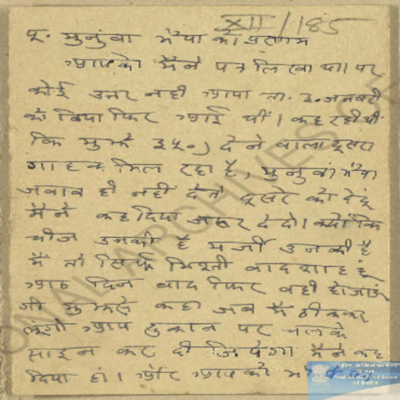 XII/185
पू. मुनुवा भैया को प्रणाम
आपको मैंने पत्र लिखा था। पर
कोई उत्तर नहीं आया ता. ३. जनवरी
को विद्या फिर आई थीं। कह रही थीं
कि मुझे ३५०) देने वाला दूसरा
गाहक मिल रहा है, मुनुवा भैया
जवाब ही नहीं देते दूसरे को दे दूं
मैंने कह दिया जरूर दे दो। क्योंकि
चीज उनकी है मर्जी उनकी है
मैं तो सिर्फ भिश्ती बादशाह हूं
आठ दिन बाद फिर वही हो जाऊं
गी मुझसे कहा जब मैं ठीक कर
लूंगी आप दुकान पर चलके
साइन कर दीजियेगा मैंने कह
दिया हां। और आपको भी
NATIONAL ARCHIVES